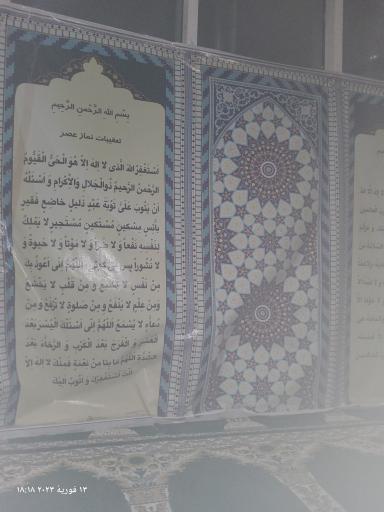 بِسْمِ اللهِ الرَّحْمنِ الرَّحِیمِ
تعقیبات نماز عصر
اَسْتَغْفِرُ اللهَ الَّذی لا اِلهَ اِلاّ هُوَ الْحَیُّ الْقَیُّومُ
الرَّحْمنُ الرَّحیمُ ذُوالْجَلالِ وَالْاِکْرامِ وَ اَسْئَلُهُ
اَنْ یَتُوبَ عَلَیَّ تَوْبَةَ عَبْدٍ ذَلیلٍ خاضِعٍ فَقیرٍ
بائِسٍ مِسْکینٍ مُسْتَکینٍ مُسْتَجیرٍ لا یَمْلِکُ
لِنَفْسِهِ نَفْعاً وَ لا ضَرّاً وَ لا مَوْتاً وَ لا حَیوةً وَ
لا نُشُوراً اَللّهُمَّ اِنّی اَعُوذُ بِکَ
مِنْ نَفْسٍ لا تَشْبَعُ وَ مِنْ قَلْبٍ لا یَخْشَعُ
وَ مِنْ عِلْمٍ لا یَنْفَعُ وَ مِنْ صَلوةٍ لا تُرْفَعُ وَ مِنْ
دُعآءٍ لا یُسْمَعُ اَللّهُمَّ اِنّی اَسْئَلُکَ الْیُسْرَ بَعْدَ
الْعُسْرِ وَ الْفَرَجَ بَعْدَ الْکَرْبِ وَ الرَّخآءَ بَعْدَ
الشِّدَّةِ اَللّهُمَّ ما بِنا مِنْ نِعْمَةٍ فَمِنْکَ لا اِلهَ اِلاّ
اَنْتَ اَسْتَغْفِرُکَ وَ اَتُوبُ اِلَیْکَ
١٣ فوریهٔ ٢٠٢٣ ١٨:١٨